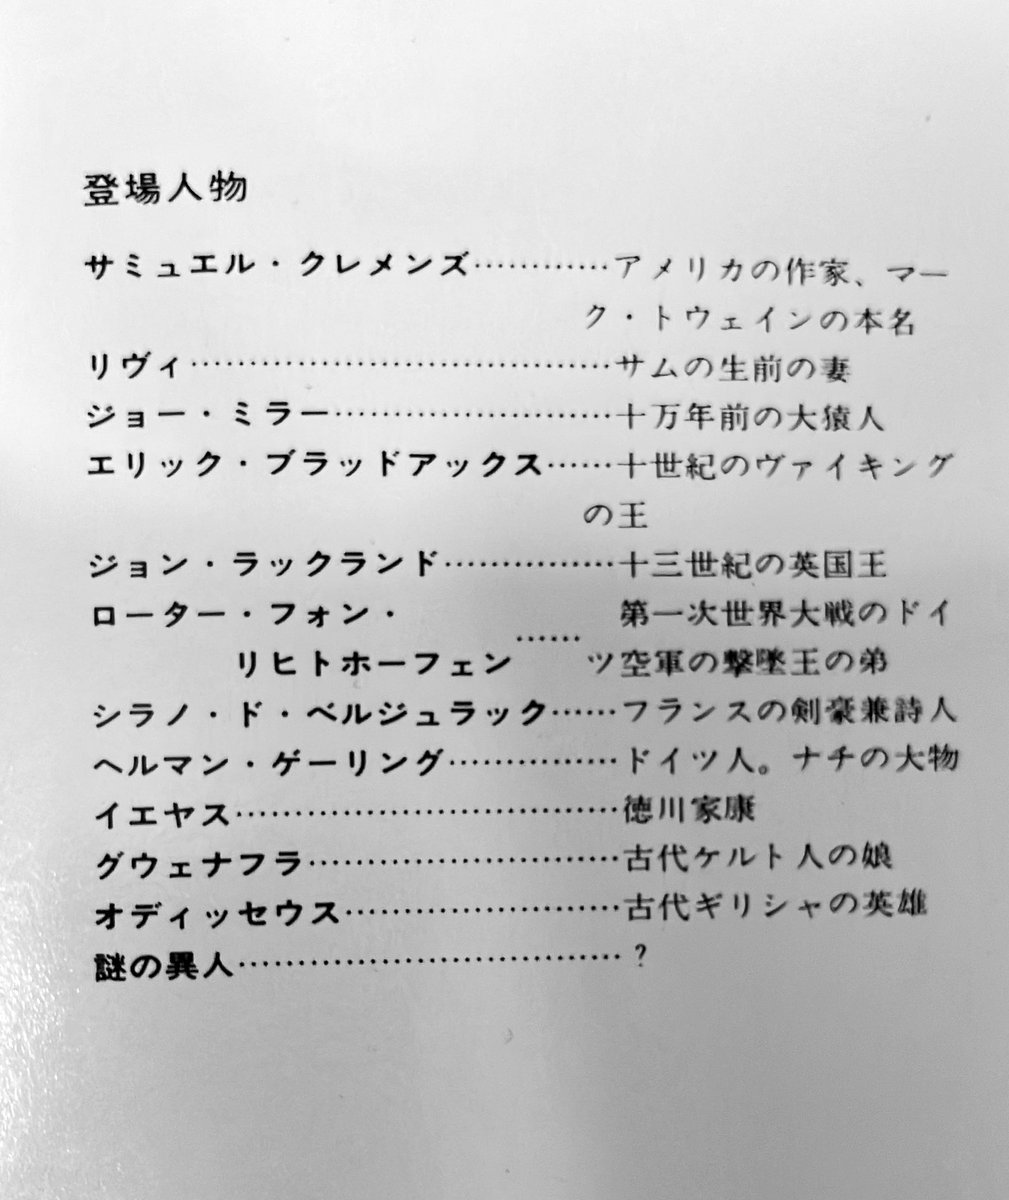 登場人物
サミュエル・クレメンズ…………アメリカの作家、マー
ク・トウェインの本名
リヴィ……………………………………サムの生前の妻
ジョー・ミラー………………………十万年前の大猿人
エリック・ブラッドアックス……十世紀のヴァイキング
の王
ジョン・ラックランド……………十三世紀の英国王
ローター・フォン・　第一次世界大戦のドイ
リヒトホーフェン……ツ空軍の撃墜王の弟
シラノ・ド・ベルジュラック……フランスの剣豪兼詩人
ヘルマン・ゲーリング……………ドイツ人。ナチの大物
イエヤス…………………………………徳川家康
グウェナフラ…………………………古代ケルト人の娘
オディッセウス………………………古代ギリシャの英雄
謎の異人…………………………………？